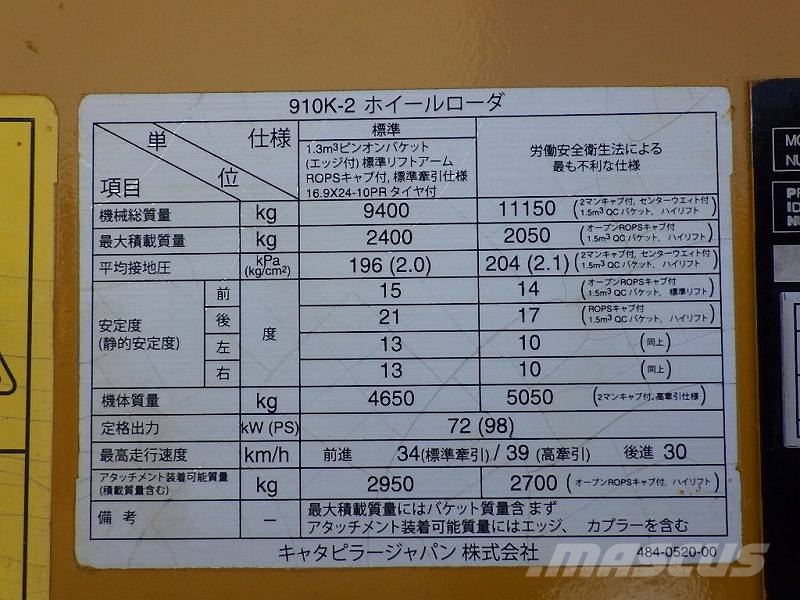 910K-2 ホイールローダ
単位 仕様 項目
標準
1.3m³ピンオンバケット
(エッジ付) 標準リフトアーム
ROPSキャブ付, 標準牽引仕様
16.9X24-10PR タイヤ付
労働安全衛生法による
最も不利な仕様
機械総質量 kg 9400 11150 (2マンキャブ付, センターウェイト付
1.5m³ QC バケット, ハイリフト)
最大積載質量 kg 2400 2050 (オープンROPSキャブ付
1.5m³ QC バケット, ハイリフト)
平均接地圧 kPa (kg/cm²) 196 (2.0) 204 (2.1) (2マンキャブ付, センターウェイト付
1.5m³ QC バケット, ハイリフト)
安定度
(静的安定度)
度
前 15 14 (オープンROPSキャブ付
1.5m³ QC バケット, 標準リフト)
後 21 17 (ROPSキャブ付
1.5m³ QC バケット, ハイリフト)
左 13 10 (同上)
右 13 10 (同上)
機体質量 kg 4650 5050 (2マンキャブ付, 高牽引仕様)
定格出力 kW (PS) 72 (98)
最高走行速度 km/h 前進 34(標準牽引) / 39 (高牽引) 後進 30
アタッチメント装着可能質量
(積載質量含む) kg 2950 2700 (オープンROPSキャブ付, ハイリフト)
備考 — 最大積載質量にはバケット質量含まず
アタッチメント装着可能質量にはエッジ、 カプラーを含む
キャタピラージャパン 株式会社 484-0520-00
MASCUS